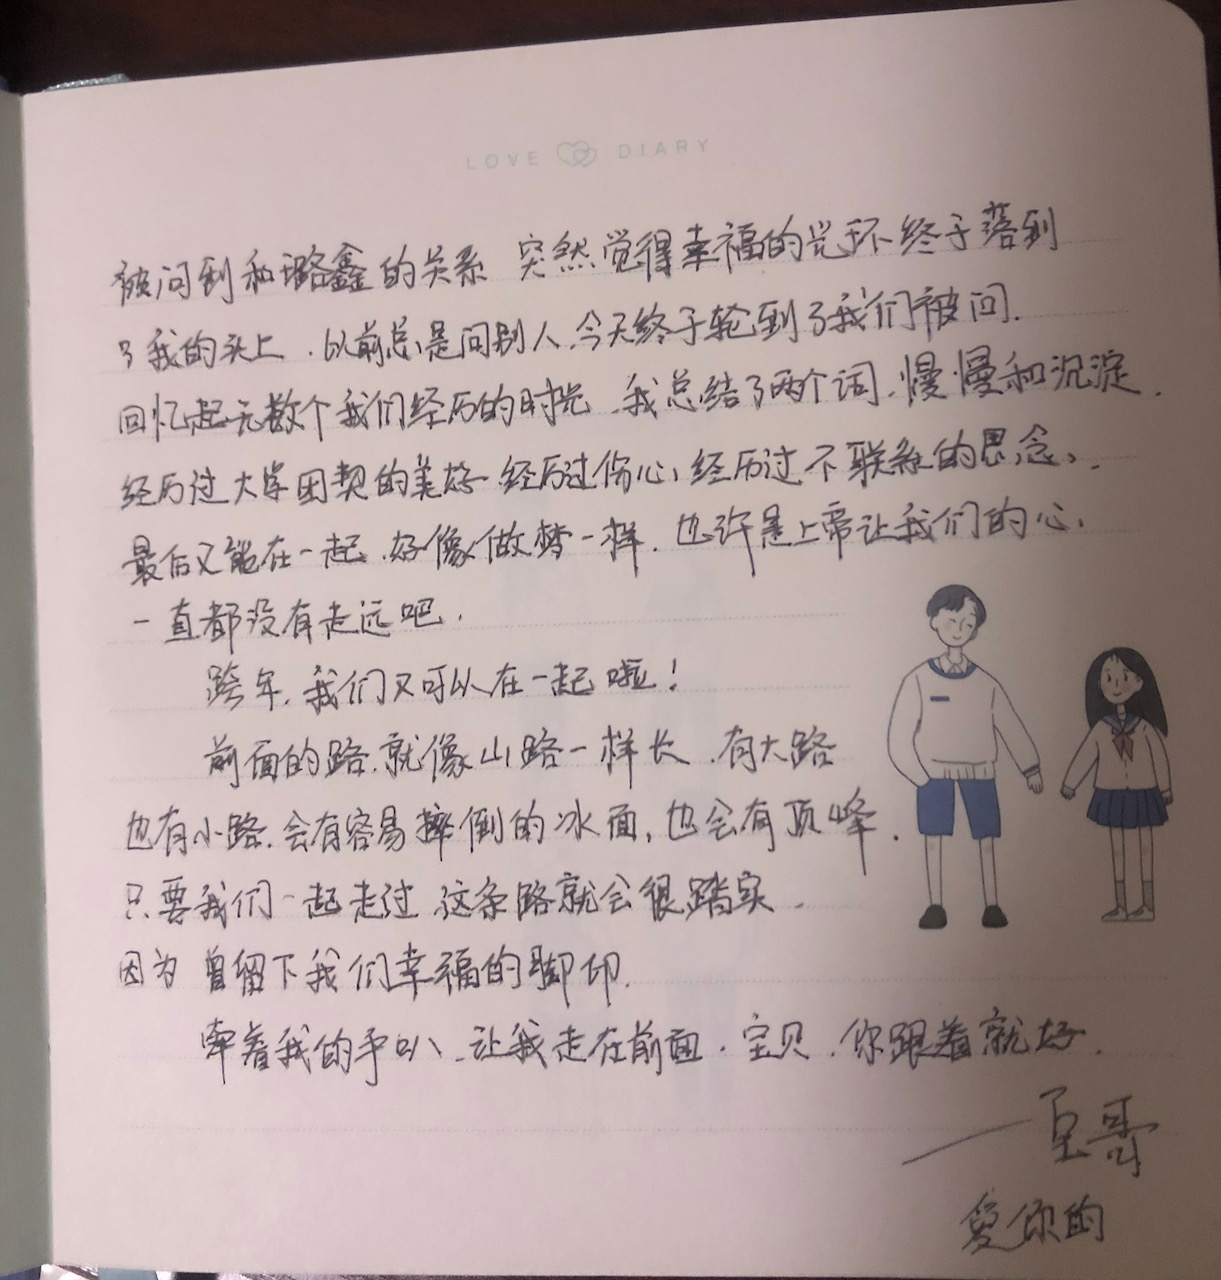 LOVE DIARY
被问到和璐鑫的关系 突然觉得幸福的光环终于落到
了我的头上.以前总是问别人.今天终于轮到了我们被问.
回忆起无数个我们经历的时光.我总结了两个词.慢慢和沉淀.
经历过大学团契的美好.经历过伤心,经历过不联系的思念,.
最后又能在一起.好像做梦一样.也许是上帝让我们的心,
一直都没有走远吧.
跨年.我们又可以在一起啦!
前面的路.就像山路一样长.有大路
也有小路.会有容易摔倒的冰面,也会有顶峰.
只要我们一起走过 这条路就会很踏实.
因为 曾留下我们幸福的脚印.
牵着我的手叭.让我走在前面.宝贝.你跟着就好.
—至哥
爱你的